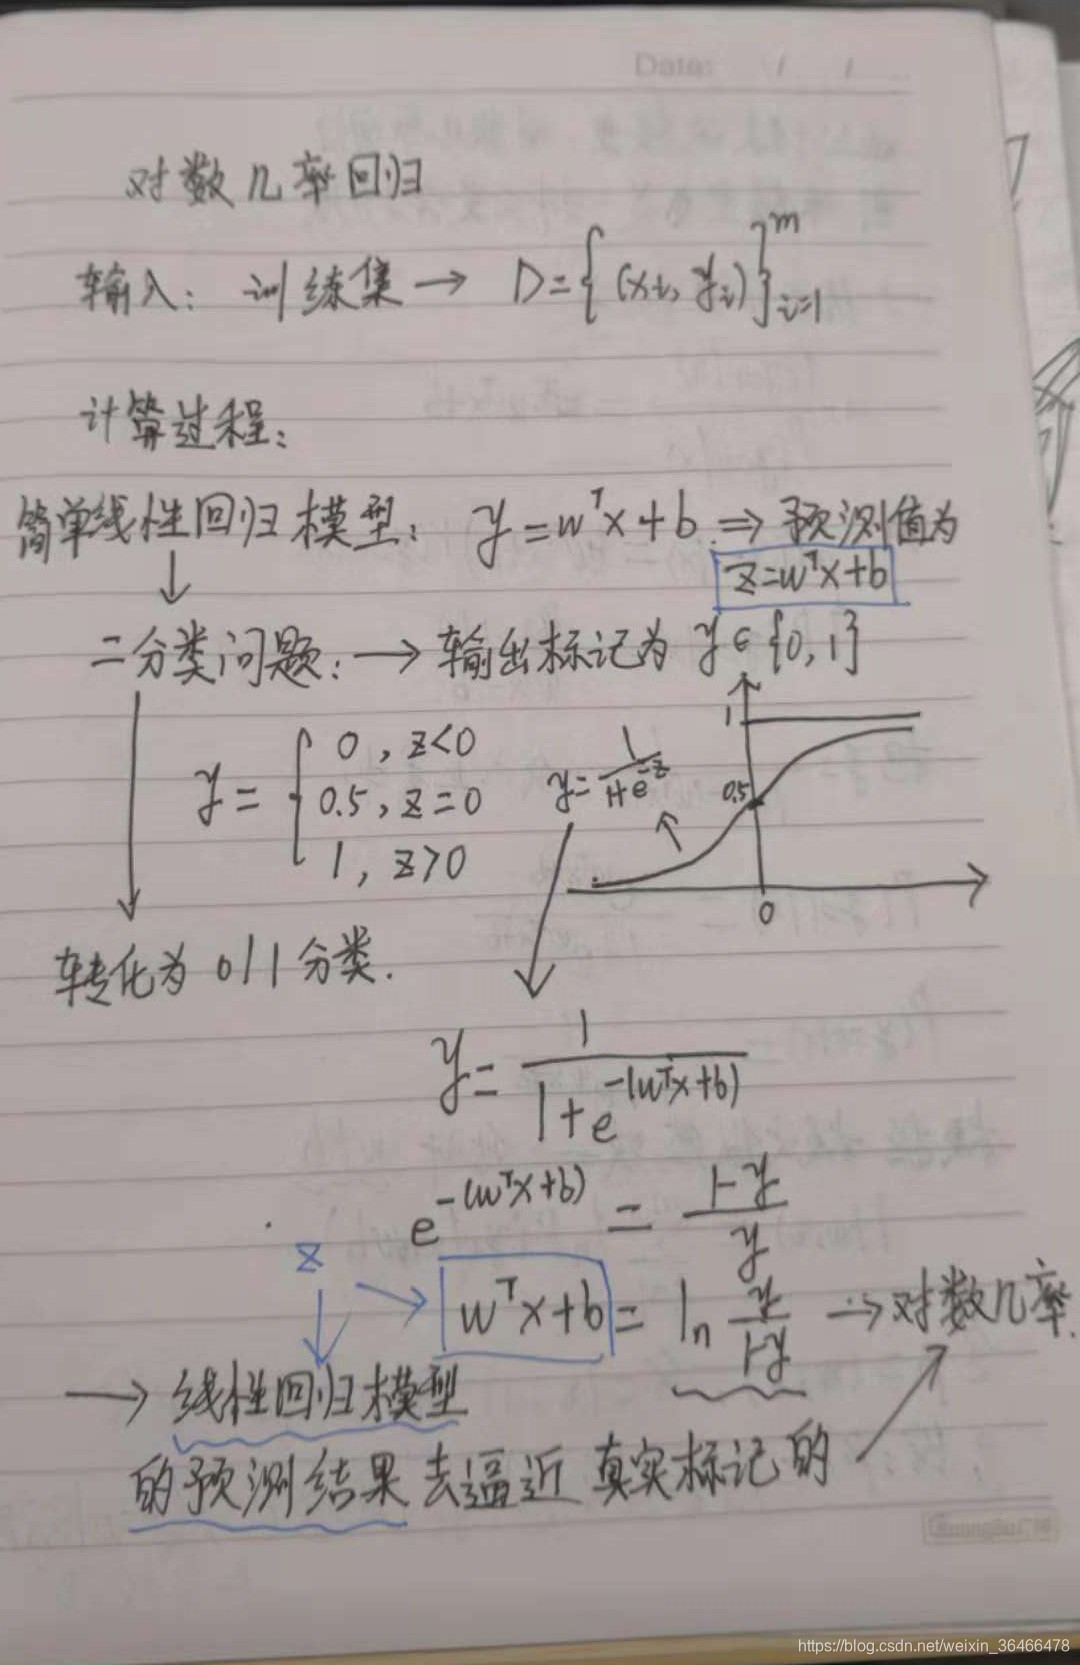 Date: / /
对数几率回归
输入: 训练集 → D={(xi, yi)}_{i=1}^m
计算过程:
简单线性回归模型: y=wᵀx+b ⇒ 预测值为
z=wᵀx+b
↓
二分类问题: → 输出标记为 y∈{0,1}
1
y= { 0, z<0
0.5, z=0
1, z>0
y=1/(1+e^{-z})
0.5
0
转化为 0/1 分类.
y=1/(1+e^{-(wᵀx+b)})
e^{-(wᵀx+b)} = (1-y)/y
z
wᵀx+b = ln y/(1-y) → 对数几率
→ 线性回归模型
的预测结果去逼近真实标记的
https://blog.csdn.net/weixin_36466478